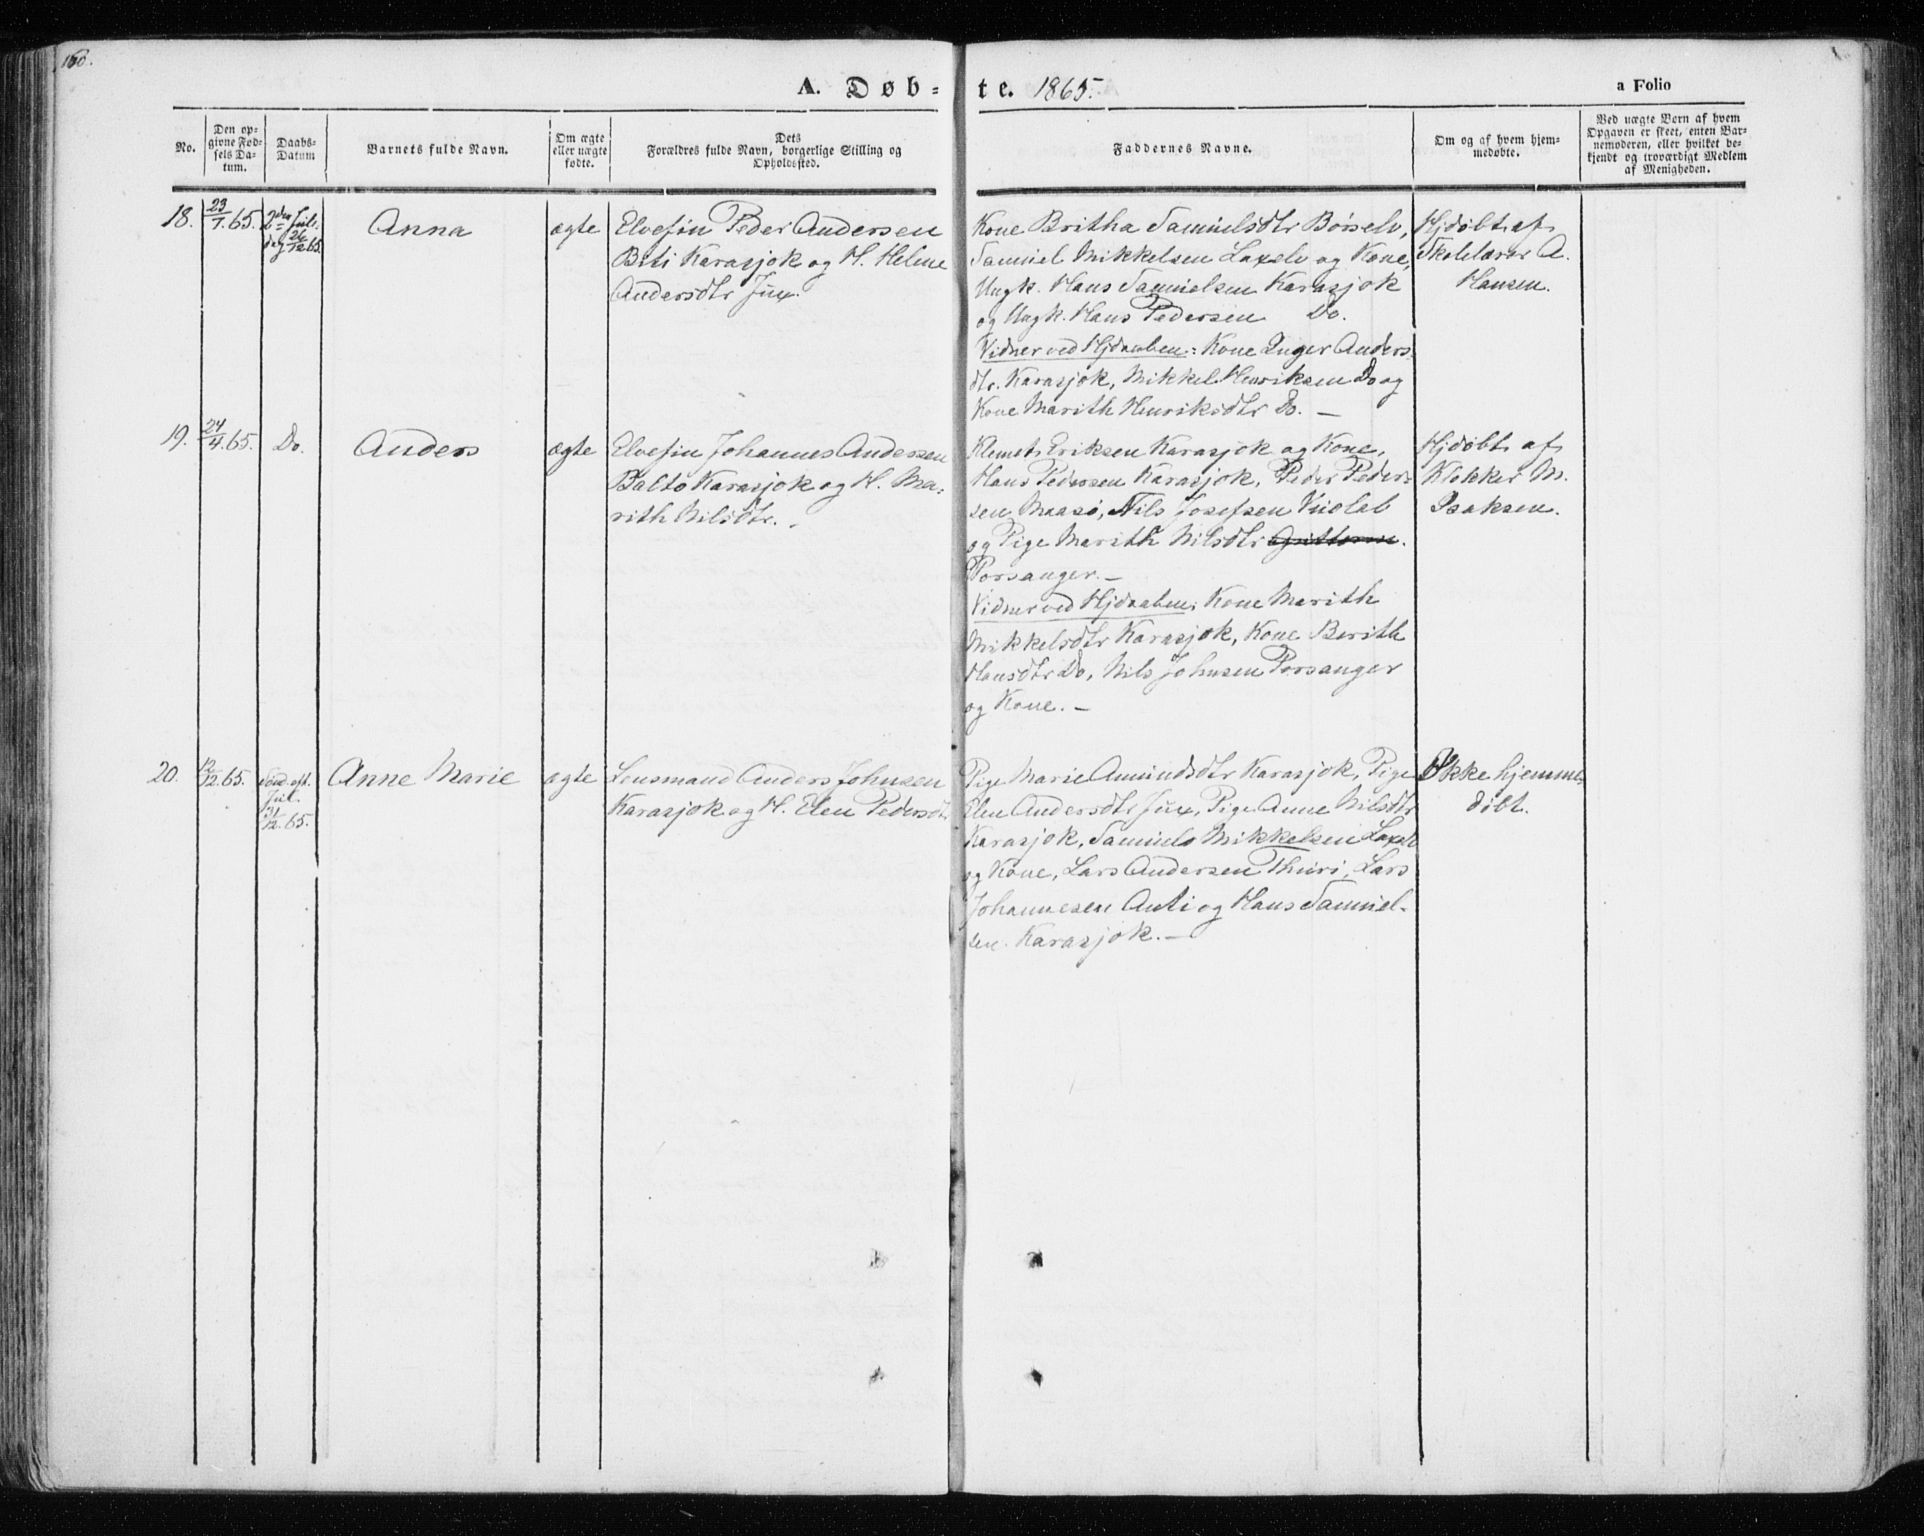 160.
A. Døb-
te. 1865.
a Folio
No.
Den op-
givne Fød-
sels Da-
tum.
Daabs-
Datum
Barnets fulde Navn.
Om ægte
eller uægte
fødte.
Dets
Forældres fulde Navn, borgerlige Stilling og
Opholdssted.
Faddernes Navne.
Om og af hvem hjem-
medøbte.
Ved uægte Børn af hvem
Opgaven er skeet, enten Bar-
nemoderen, eller hvilket be-
kjendt og troværdigt Medlem
af Menigheden.
18.
23/7.65.
2den Jule-
dag 26/12 65.
Anna
ægte
Elvefin Peder Andersen
Biti Karasjok og H. Helene
Andersdtr Jux.
Kone Britha Samuelsdtr Børselv,
Samuel Mikkelsen Laxelv og Kone,
Ungk. Hans Samuelsen Karasjok
og Ungk. Hans Pedersen Do.
Vidner ved Hjdaaben: Kone Inger Anders-
dtr. Karasjok, Mikkel Henriksen Do og
Kone Marith Henriksdtr Do. —
Hjdøbt af
Skolelærer A.
Hansen.
19.
24/4.65.
Do.
Anders
ægte
Elvefin Johannes Andersen
Balto Karasjok og H. Ma-
rith Nilsdtr.
Klemet Eriksen Karasjok og Kone,
Hans Pedersen Karasjok, Peder Peder-
sen Maasø, Nils Josefsen Vuolab
og Pige Marith Nilsdtr
Porsanger. —
Vidner ved Hjdaaben: Kone Marith
Mikkelsdtr Karasjok, Kone Berith
Hansdtr Do, Nils Johnsen Porsanger
og Kone. —
Hjdøbt af
Klokker M.
Isaksen.
20.
12/12.65.
Sønd. eft.
Jul
31/12.65.
Anne Marie
ægte
Lensmand Anders Johnsen
Karasjok og H. Elen Pedersdt.
Pige Marie Amundsdtr Karasjok, Pige
Elen Andersdtr Jux, Pige Anne Nilsdtr
Karasjok, Samuels Mikkelsen Laxelv
og Kone, Lars Andersen Thuri, Lars
Johannesen Anti og Hans Samuel-
sen. Karasjok. —
Ikke hjemme-
døbt.